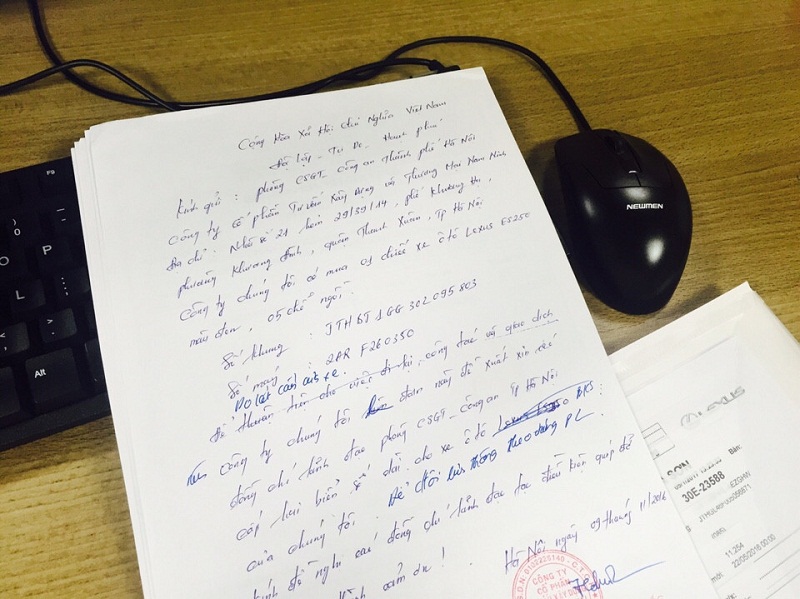 Cộng Hòa Xã Hội Chủ Nghĩa Việt Nam
Độc lập - Tự Do - Hạnh phúc
Kính gửi : phòng CSGT - Công an Thành phố Hà Nội
Công ty Cổ phần Tư vấn Xây Dựng và Thương Mại Nam Ninh
Địa chỉ : Nhà số 21 hẻm 29/39/14, phố Khương Hạ,
phường Khương Đình, quận Thanh Xuân, Tp Hà Nội
Công ty chúng tôi có mua 01 chiếc xe ô tô Lexus ES250
màu đen, 05 chỗ ngồi.
Số khung : JTHBJ1GG302095803
Số máy : 2AR F260350
để thuận tiện cho việc đi lại, công tác và giao dịch
Công ty chúng tôi làm đơn này đề xuất xin các
đồng chí lãnh đạo phòng CSGT - Công an Tp Hà Nội
cấp lại biển số dài cho xe ô tô Lexus BKS:
của chúng tôi. Để đổi lưu thông theo đúng PL.
kính đề nghị các đồng chí lãnh đạo tạo điều kiện giúp đỡ
cảm ơn !
Hà Nội ngày 09 tháng 11/2016
CÔNG TY
CỔ PHẦN
NEWMEN
LEXUS
SƠN
30E-23588
Bán:
11.254
22/05/2018 00:00
P
L
Alt